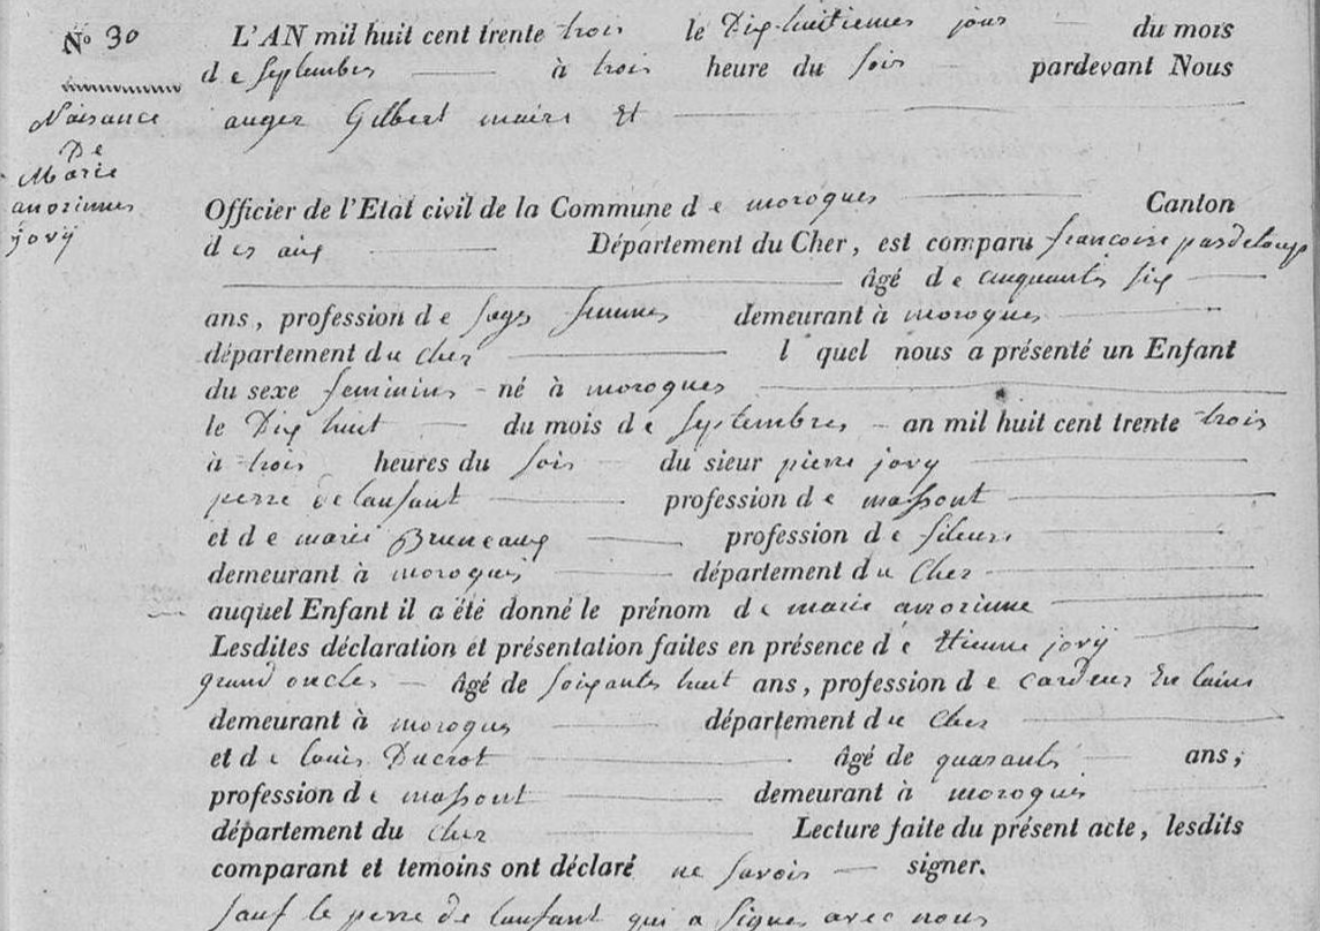 N° 30
Naisance
De
Marie
anorinne
jovy
L'AN mil huit cent trente trois le Dix huitieme jour du mois
de septembre à trois heure du soir pardevant Nous
auger Gilbert maire Et
Officier de l'Etat civil de la Commune de morogues Canton
des aix Département du Cher, est comparu francoise pasdeloup
âgé de cinquante six
ans, profession de sage femme demeurant à morogues
département du cher l quel nous a présenté un Enfant
du sexe feminin né à morogues
le Dix huit du mois de septembre an mil huit cent trente trois
à trois heures du soir du sieur pierre jovy
perre de lanfant profession de massont
et de marie Bruneaux profession de fileuse
demeurant à morogues département du Cher
auquel Enfant il a été donné le prénom de marie anorinne
Lesdites déclaration et présentation faites en présence de Etienne jovy
grand oncle âgé de soixante huit ans, profession de cardeur En laine
demeurant à morogues département du Cher
et de louis Ducrot âgé de quarante ans,
profession de massont demeurant à morogues
département du cher Lecture faite du présent acte, lesdits
comparant et temoins ont déclaré ne savoir signer.
sauf le perre de lanfant qui a signer avec nous